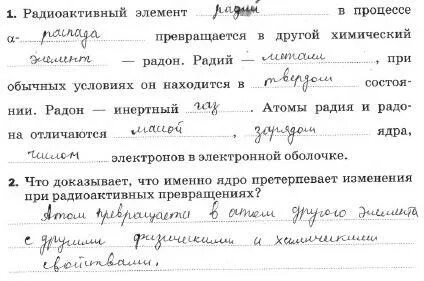 1. Радиоактивный элемент радий в процессе
α- распада превращается в другой химический
элемент — радон. Радий — металл, при
обычных условиях он находится в твердом состоя-
нии. Радон — инертный газ. Атомы радия и радо-
на отличаются массой, зарядом ядра,
числом электронов в электронной оболочке.
2. Что доказывает, что именно ядро претерпевает изменения
при радиоактивных превращениях?
Атом превращается в атом другого элемента
с другими физическими и химическими
свойствами.